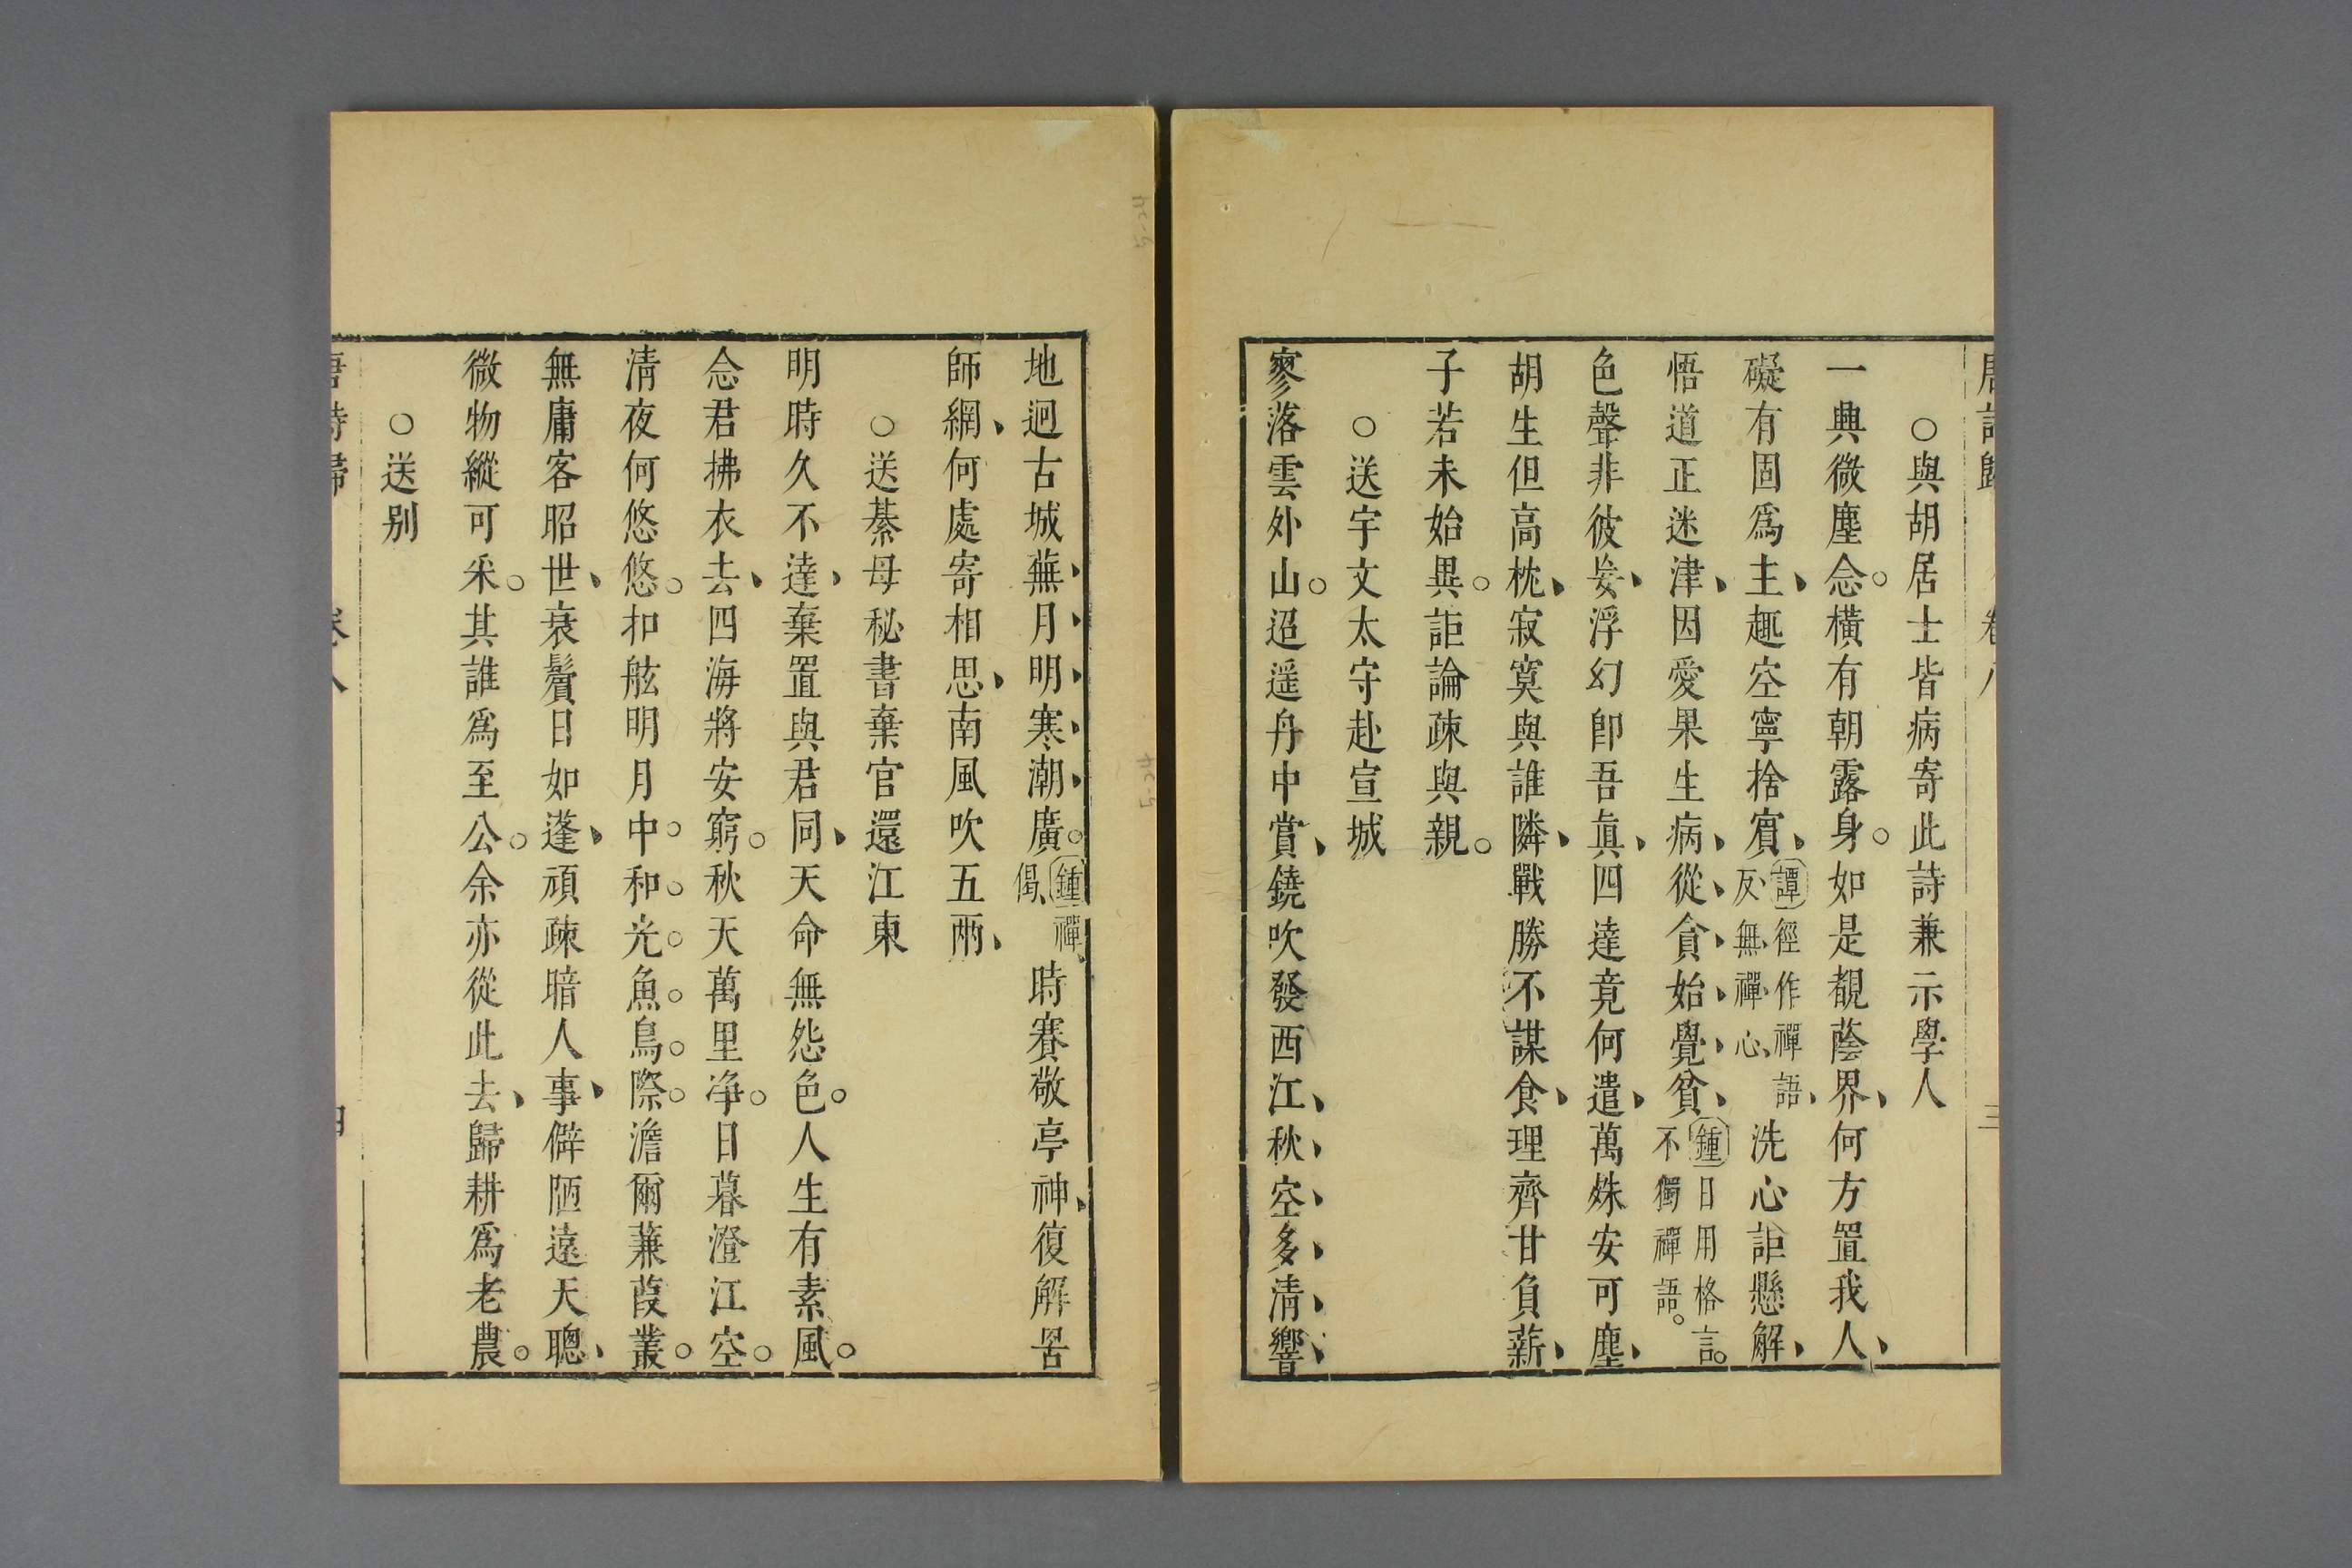 唐詩歸 卷八 三
○與胡居士皆病寄此詩兼示學人
一興微塵念。橫有朝露身。如是覩蔭界、何方置我人、
礙有固爲主、趣空寧捨賓、譚徑作禪語、反無禪心、洗心詎懸解、
悟道正迷津、因愛果生病、從貪始覺貧、鍾日用格言。不獨禪語。
色聲非彼妄、浮幻卽吾眞、四達竟何遣、萬殊安可塵、
胡生但高枕、寂寞與誰隣、戰勝不謀食、理齊甘負薪、
子若未始異。詎論疎與親。
○送宇文太守赴宣城
寥落雲外山。迢遥舟中賞、鐃吹發西江、秋空多淸響、
地迥古城蕪、月明寒潮廣。鍾禪偈、時賽敬亭神、復解罟
師網、何處寄相思、南風吹五兩、
○送綦母秘書棄官還江東
明時久不達、棄置與君同、天命無怨色。人生有素風。
念君拂衣去、四海將安窮。秋天萬里净。日暮澄江空。
淸夜何悠悠。扣舷明月中。和光魚鳥際。澹爾蒹葭叢。
無庸客昭世、衰鬢日如蓬、頑疎暗人事、僻陋遠天聰、
微物縱可采。其誰爲至公。余亦從此去、歸耕爲老農。
○送别
唐詩歸 卷八 四